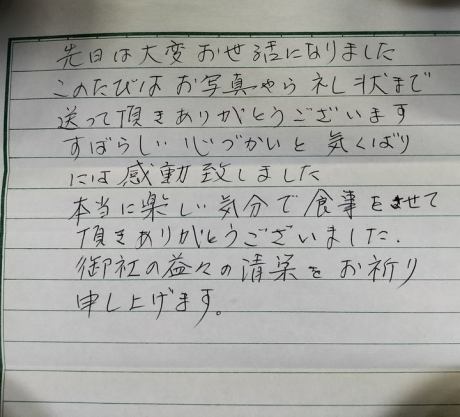 先日は大変お世話になりました
このたびはお写真やら礼状まで
送って頂きありがとうございます
すばらしい心づかいと気くばり
には感動致しました
本当に楽しい気分で食事をさせて
頂きありがとうございました.
御社の益々の清栄をお祈り
申し上げます。